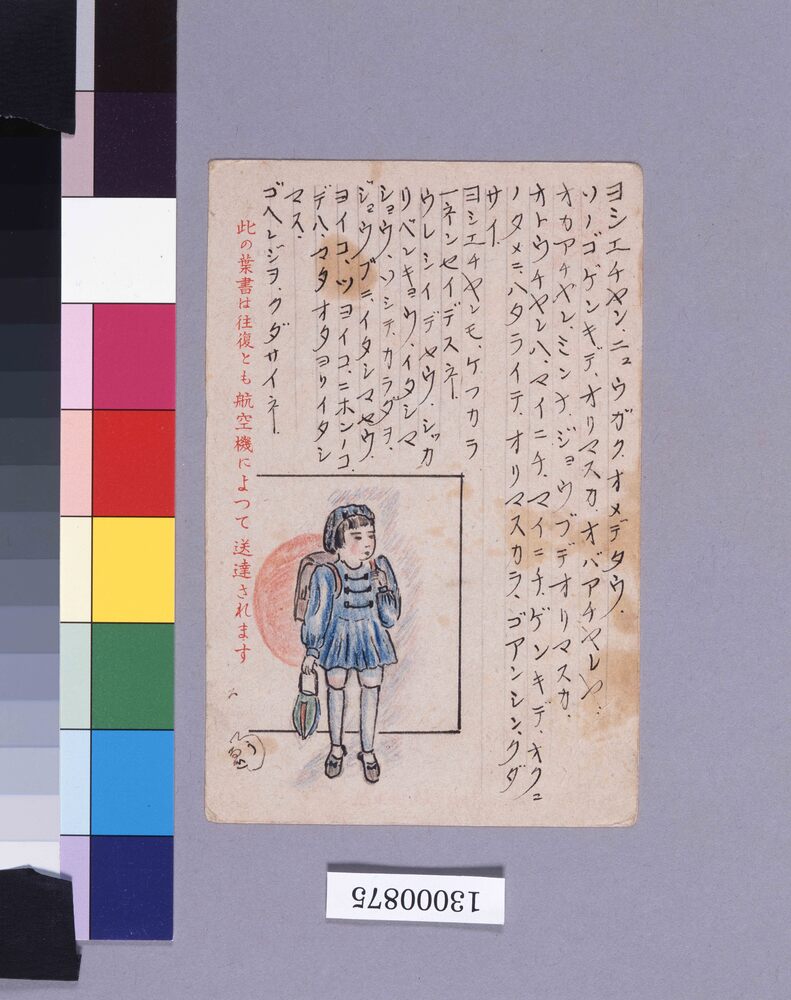 ヨシエチヤン、ニュウガク、オメデタウ、
ソノゴ、ゲンキデ、オリマスカ、オバアチヤン、
オカアチヤン、ミンナ、ジョウブデオリマスカ、
オトウチヤンハ、マイニチ、マイニチ、ゲンキデ、オクニ
ノタメニ、ハタライテ、オリマスカラ、ゴアンシン、クダ
サイ、
ヨシエチヤンモ、ケフカラ
一ネンセイデスネー、
ウレシイデセウ、シッカ
リベンキョウ、イタシマ
ショウ、ソシテ、カラダヲ、
ジョウブニ、イタシマセウ、
ヨイコ、ツヨイコ、ニホンノコ、
デハ、マタオタヨリイタシ
マス、
ゴヘンジヲ、クダサイネー、
此の葉書は往復とも航空機によつて送達されます
13000875